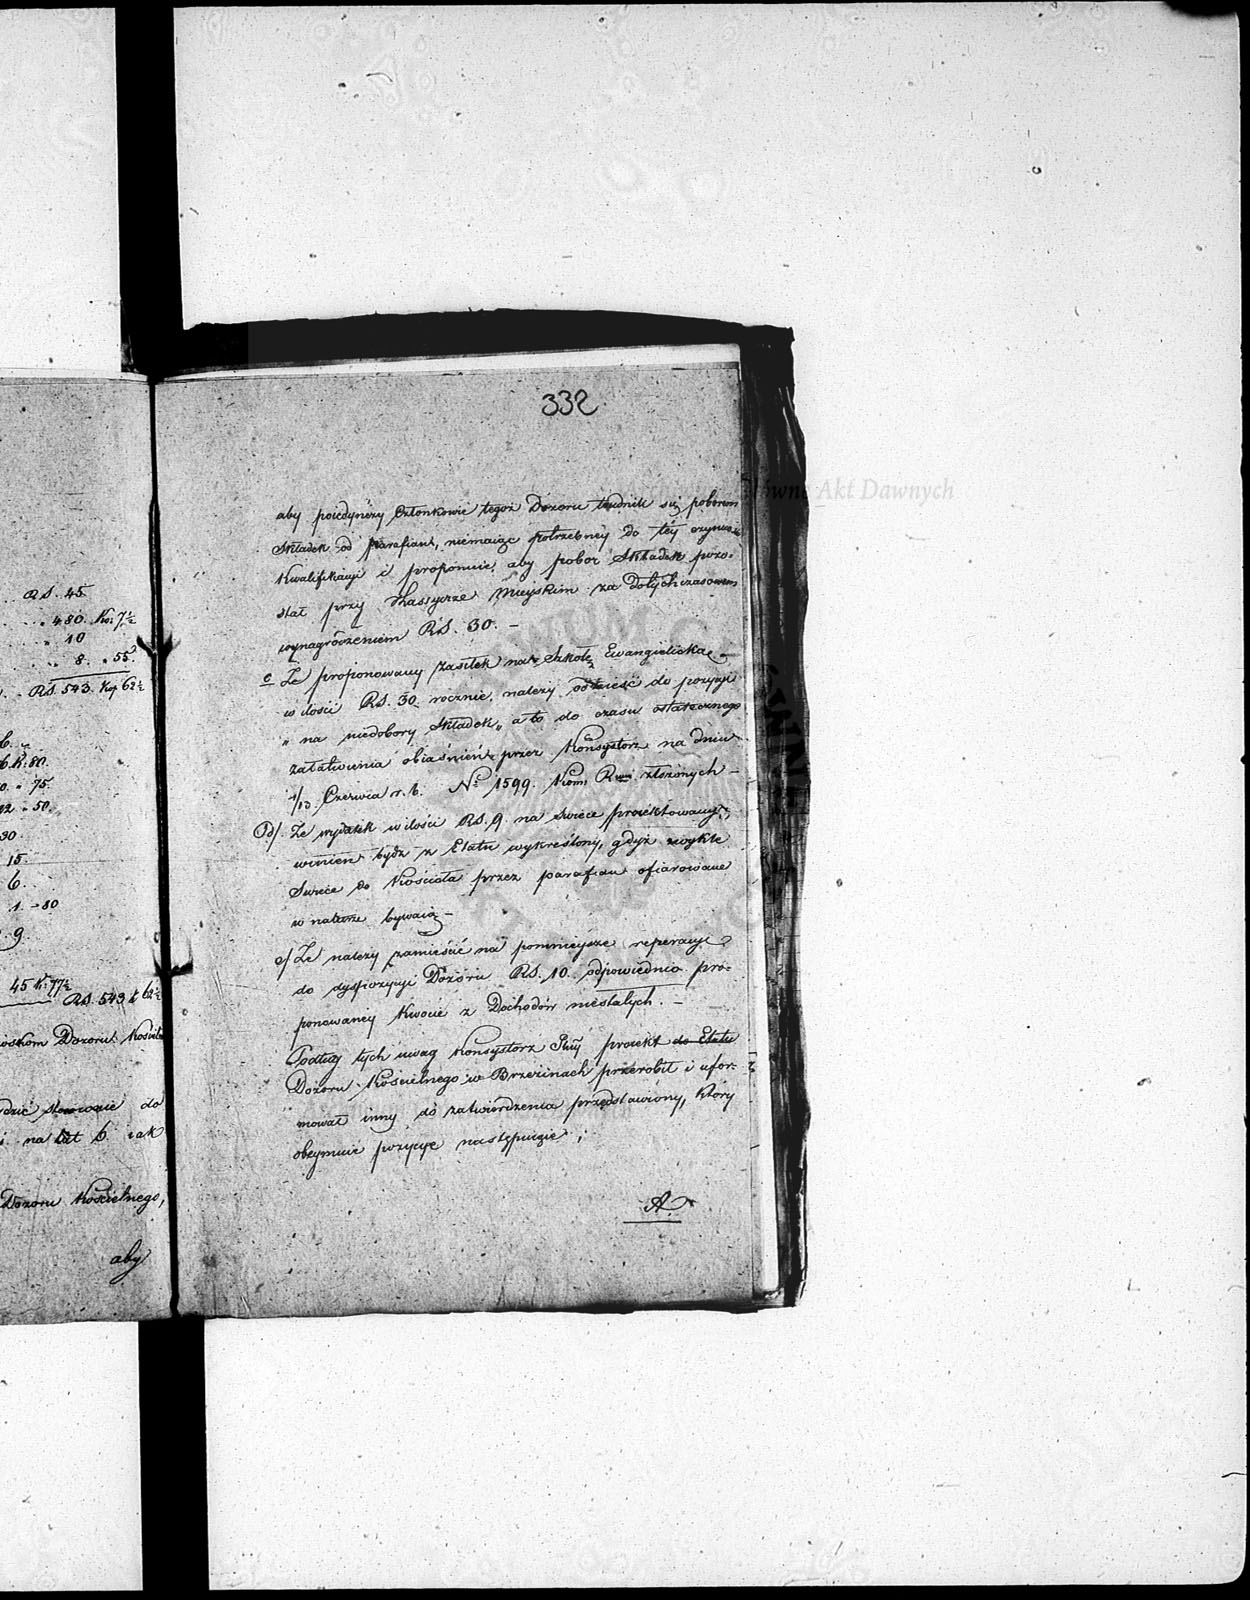 R.S. 45
" 480. Ko: 7½
" 10
" 8. " 55
RS. 543. Kop 62½
6.
6. K: 80.
0. " 75.
12 " 50.
30
15
6.
1. - 80
9
45 K: 77½
RS. 543 k 62½
Dozoru Kościel
stosownie do
na lat 6. jak
Dozoru Kościelnego,
aby
332
aby pojedynczy Członkowie tegoż Dozoru trudnili się poborem
składek od parafian, niemaiąc potrzebney do téy czynności
kwalifikacyi i proponuie aby pobor składek pozo-
stał przy Kassyerze Mieyskim za dotychczasowem
wynagrodzeniem RS. 30. -
c Że proponowany zasiłek na Szkołę Ewangielicką -
w ilości RS. 30 rocznie, należy odnieść do pozycyi
„ na niedobory składek „ a to do czasu ostatecznego
załatwienia obiaśnień przez Konsystorz na dniu
1/13 Czerwca r. b. No 1599. Kom. Rwéj złożonych -
d/. Że wydatek w ilości RS. 9. na świece proiektowany,
winien bydź z Etatu wykreślony, gdyż zwykle
Swiece do Kościoła przez parafian ofiarowane
w naturze bywaią -
e/ Że należy zamieścić na pomnieysze reperacye
do dyspozycyi Dozoru RS. 10. odpowiednio pro-
ponowaney kwocie z Dochodów niestałych. -
Podług tych uwag Konsystorz proiekt do Etatu
Dozoru Kościelnego w Brzezinach przerobił i ufor-
mował inny do zatwierdzenia przedstawiony, który
obeymuie pozycye następuiące ;
A.
Główne Akt Dawnych